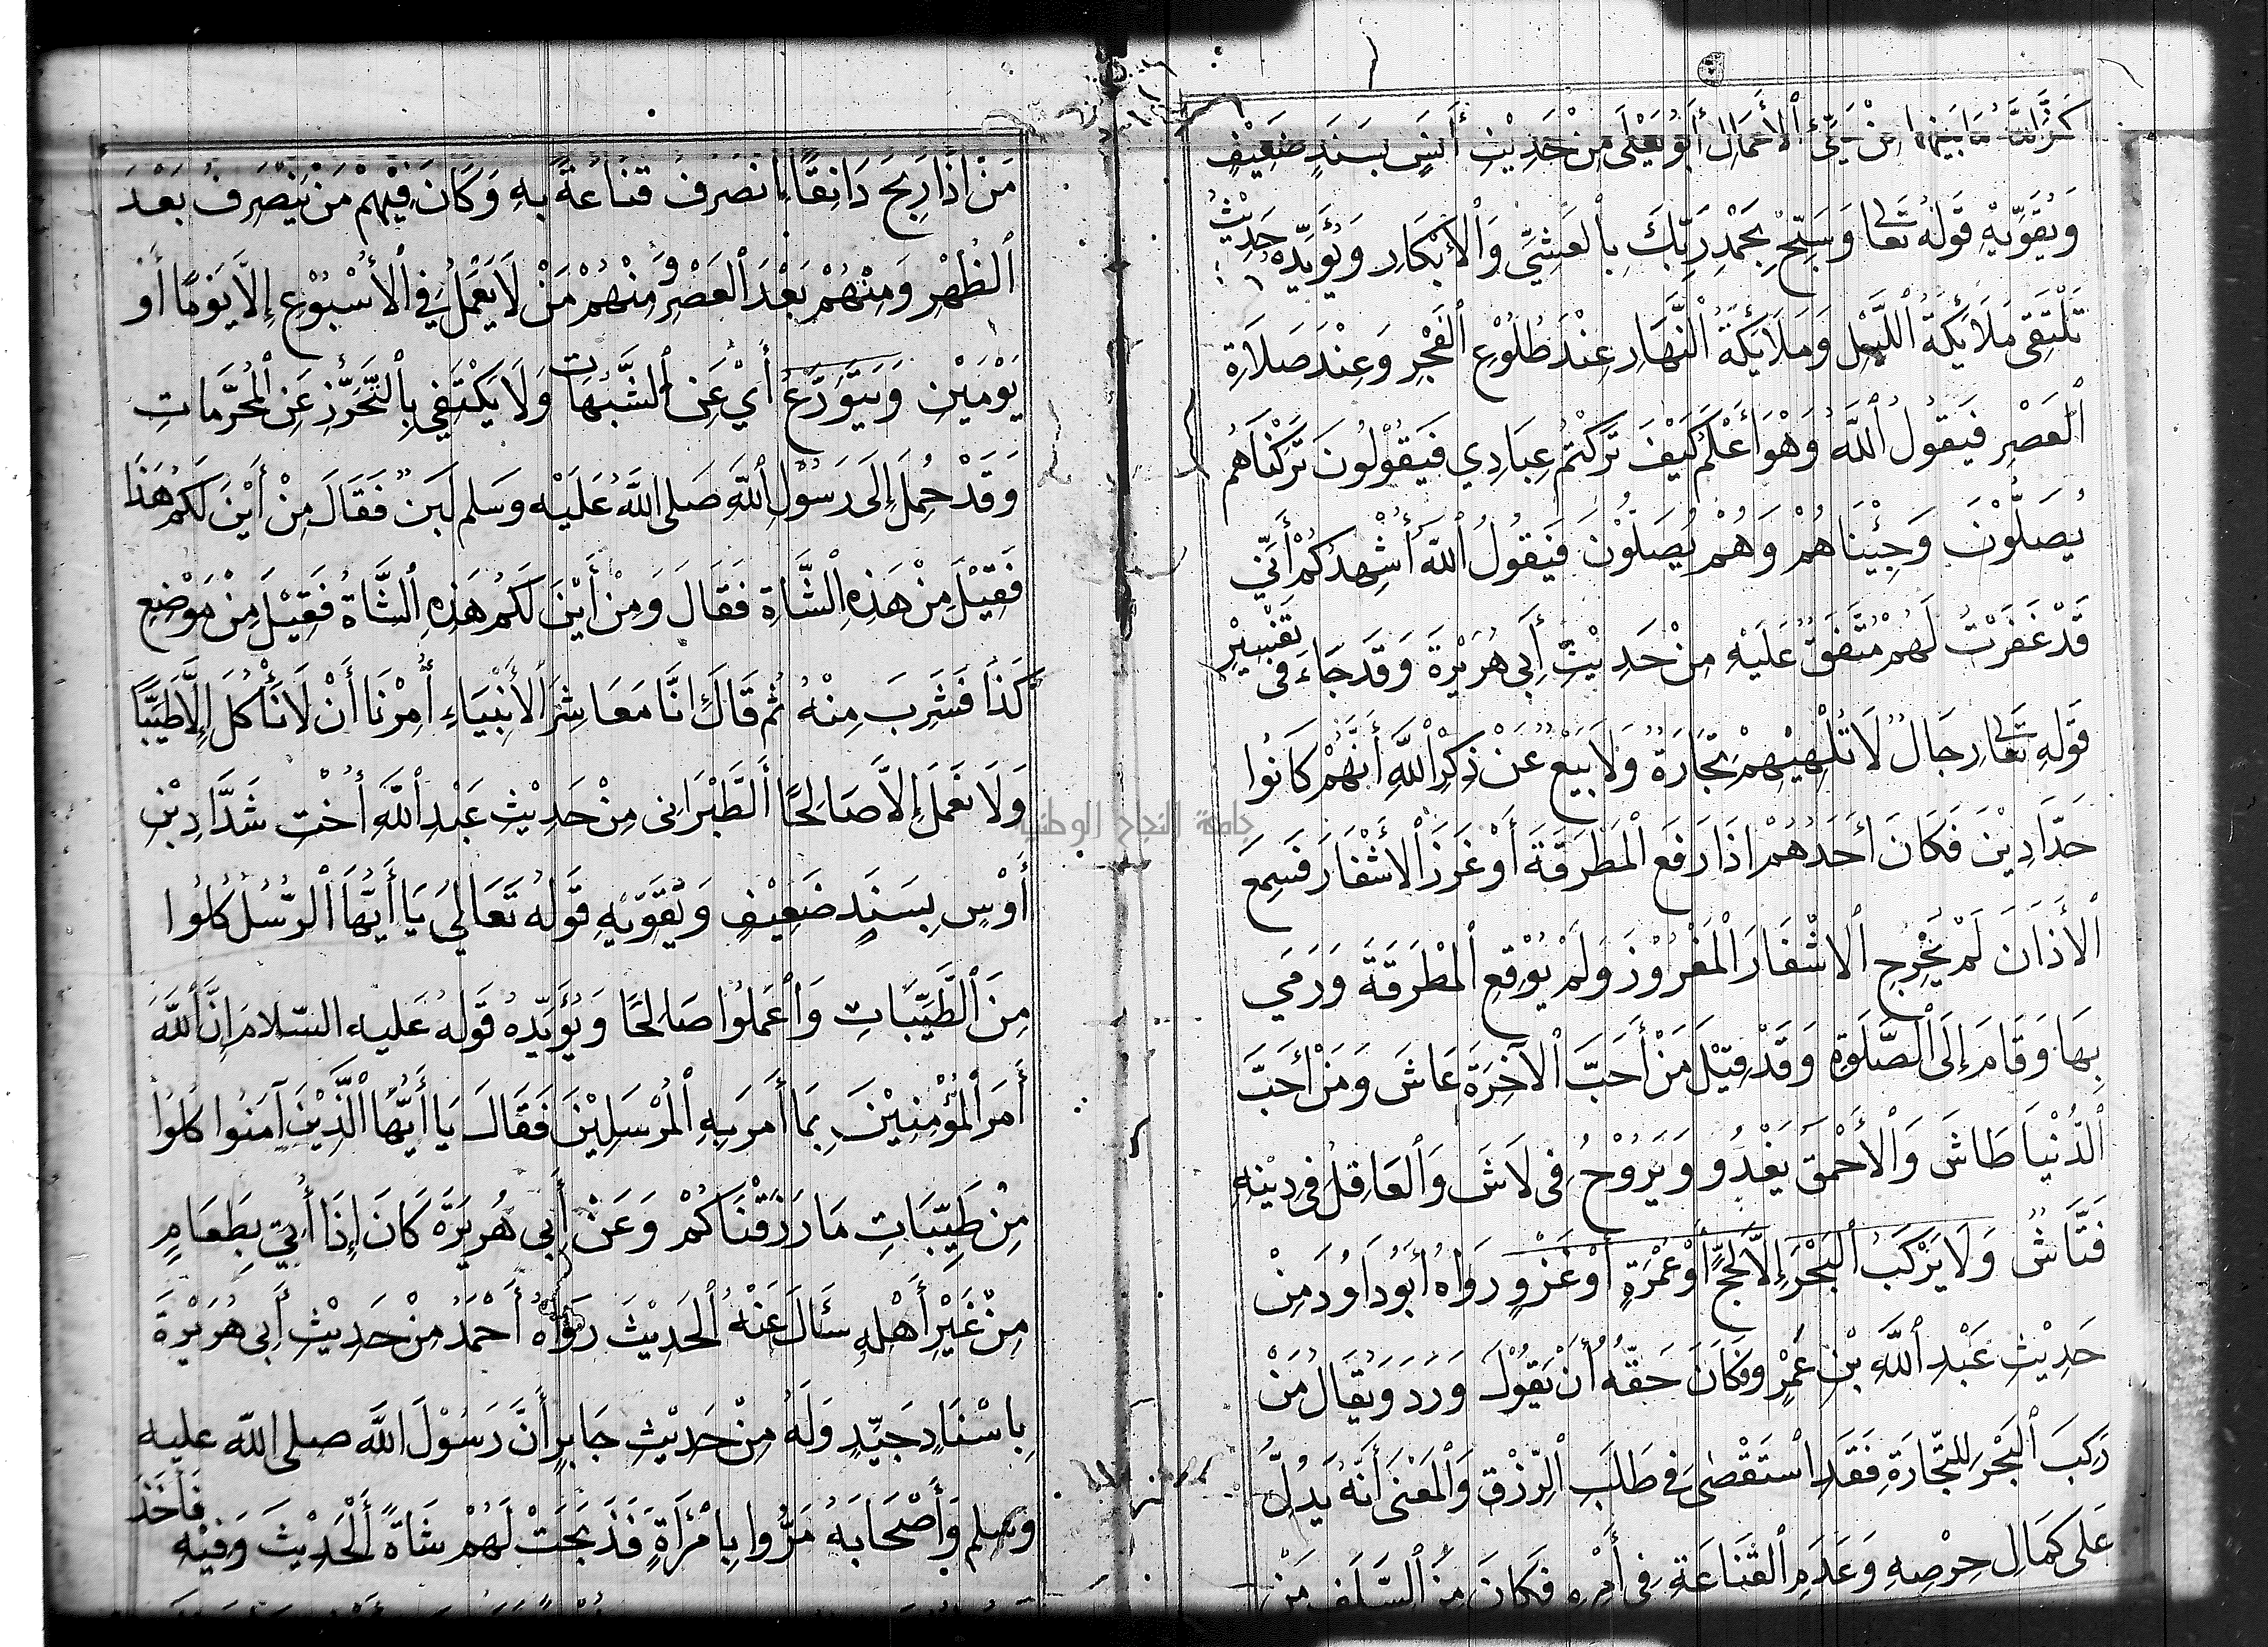 كَفَّرَ اللَّهُ مَا بَيْنَهُمَا مِنْ سَيِّئِ ٱلْأَعْمَالِ أَبُو يَعْلَى مِنْ حَدِيْثِ أَنَسٍ بِسَنَدٍ ضَعِيْفٍ
وَيُقَوِّيْهِ قَوْلُهُ تَعَالَى وَسَبِّحْ بِحَمْدِ رَبِّكَ بِٱلْعَشِيِّ وَٱلْأَبْكَارِ وَيُؤَيِّدُهُ حَدِيْثُ
تَلْتَقِي مَلَائِكَةُ ٱللَّيْلِ وَمَلَائِكَةُ ٱلنَّهَارِ عِنْدَ طُلُوْعِ ٱلْفَجْرِ وَعِنْدَ صَلَاةِ
ٱلْعَصْرِ فَيَقُولُ ٱللَّهُ وَهُوَ أَعْلَمُ كَيْفَ تَرَكْتُمْ عِبَادِي فَيَقُوْلُونَ تَرَكْنَاهُمْ
يُصَلُّوْنَ وَجِئْنَاهُمْ وَهُمْ يُصَلُّوْنَ فَيَقُولُ ٱللَّهُ أُشْهِدُكُمْ أَنِّي
قَدْ غَفَرْتُ لَهُمْ مُتَّفَقٌ عَلَيْهِ مِنْ حَدِيْثِ أَبِي هُرَيْرَةَ وَقَدْ جَاءَ فِي تَفْسِيْرِ
قَوْلِهِ تَعَالَى رِجَالٌ لَا تُلْهِيْهِمْ تِجَارَةٌ وَلَا بَيْعٌ عَنْ ذِكْرِ ٱللَّهِ أَنَّهُمْ كَانُوا
حَدَّادِيْنَ فَكَانَ أَحَدُهُمْ إِذَا رَفَعَ ٱلْمَطْرَقَةَ أَوْ غَرَزَ ٱلْأَشْفَارَ فَسَمِعَ
ٱلْأَذَانَ لَمْ يُخْرِجِ ٱلْاشْفَارَ ٱلْمَغْرُوْزَ وَلَمْ يُوْقِعِ ٱلْمَطْرَقَةَ وَرَمَي
بِهَا وَقَامَ إِلَى ٱلصَّلَوةِ وَقَدْ قِيْلَ مَنْ أَحَبَّ ٱلْآخِرَةَ عَاشَ وَمَنْ أَحَبَّ
ٱلدُّنْيَا طَاشَ وَٱلْأَحْمَقُ يَغْدُو وَيَرُوْحُ فِي لَاشَ وَٱلْعَاقِلُ فِي دِيْنِهِ
فَتَّاشٌ وَلَا يَرْكَبُ ٱلْبَحْرَ إِلَّا لِحَجٍّ أَوْ عُمْرَةٍ أَوْ غَزْوٍ رَوَاهُ أَبُو دَاوُدَ مِنْ
حَدِيْثِ عَبْدِ ٱللَّهِ بْنِ عَمْرٍو وَكَانَ حَقُّهُ أَنْ يَقُوْلَ وَرَدَ وَيُقَالُ مَنْ
رَكِبَ ٱلْبَحْرَ لِلتِّجَارَةِ فَقَدِ ٱسْتَقْصَى فِي طَلَبِ ٱلرِّزْقِ وَٱلْمَعْنَى أَنَّهُ يَدُلُّ
عَلَى كَمَالِ حِرْصِهِ وَعَدَمِ ٱلْقَنَاعَةِ فِي أَمْرِهِ فَكَانَ مِنَ ٱلسَّلَفِ مَنْ
مَنْ إِذَا رَبِحَ دَانِقًا اِنْصَرَفَ قَنَاعَةً بِهِ وَكَانَ فِيْهِمْ مَنْ يَنْصَرِفُ بَعْدَ
ٱلظُّهْرِ وَمِنْهُمْ بَعْدَ ٱلْعَصْرِ وَمِنْهُمْ مَنْ لَا يَعْمَلُ فِي ٱلْأُسْبُوْعِ إِلَّا يَوْمًا أَوْ
يَوْمَيْنِ وَيَتَوَرَّعُ أَيْ عَنِ ٱلشُّبُهَاتِ وَلَا يَكْتَفِي بِٱلتَّحَرُّزِ عَنِ ٱلْمُحَرَّمَاتِ
وَقَدْ حُمِلَ إِلَى رَسُوْلِ ٱللَّهِ صَلَى اللَّهُ عَلَيْهِ وَسَلم لَبَنٌ فَقَالَ مِنْ أَيْنَ لَكُمْ هَذَا
فَقِيْلَ مِنْ هَذِهِ ٱلشَّاةِ فَقَالَ وَمِنْ أَيْنَ لَكُمْ هَذِهِ ٱلشَّاةُ فَقِيْلَ مِنْ مَوْضِعِ
كَذَا فَشَرِبَ مِنْهُ ثُمَّ قَالَ إِنَّا مَعَاشِرَ ٱلْأَنْبِيَاءِ أُمِرْنَا أَنْ لَا نَأْكُلَ إِلَّا طَيِّبًا
وَلَا نَعْمَلَ إِلَّا صَالِحًا ٱلطَّبَرَانِي مِنْ حَدِيْثِ عَبْدِ ٱللَّهِ أُخْتِ شَدَّادِ بْنِ
أَوْسٍ بِسَنَدٍ ضَعِيْفٍ وَيُقَوِّيْهِ قَوْلُهُ تَعَالَى يَا أَيُّهَا ٱلرُّسُلُ كُلُوا
مِنَ ٱلطَّيِّبَاتِ وَٱعْمَلُوا صَالِحًا وَيُؤَيِّدُهُ قَوْلُهُ عَلَيهِ السّلَام إِنَّ ٱللَّهَ
أَمَرَ ٱلْمُؤْمِنِيْنَ بِمَا أَمَرَ بِهِ ٱلْمُرْسَلِيْنَ فَقَالَ يَا أَيُّهَا ٱلَّذِيْنَ آمَنُوا كُلُوا
مِنْ طَيِّبَاتِ مَا رَزَقْنَاكُمْ وَعَنْ أَبِي هُرَيْرَةَ كَانَ إِذَا أُتِيَ بِطَعَامٍ
مِنْ غَيْرِ أَهْلِهِ سَئَالَ عَنْهُ ٱلْحَدِيْثَ رَوَاهُ أَحْمَدُ مِنْ حَدِيْثِ أَبِي هُرَيْرَةَ
بِإِسْنَادٍ جَيِّدٍ وَلَهُ مِنْ حَدِيْثِ جَابِرٍ أَنَّ رَسُوْلَ اللَّهِ صلى اللّه عليه
وسلم وَأَصْحَابَهُ مَرُّوا بِٱمْرَأَةٍ فَذَبَحَتْ لَهُمْ شَاةً ٱلْحَدِيْثَ وَفِيْهِ فَأَخَذَ
جامعة النجاح الوطنية